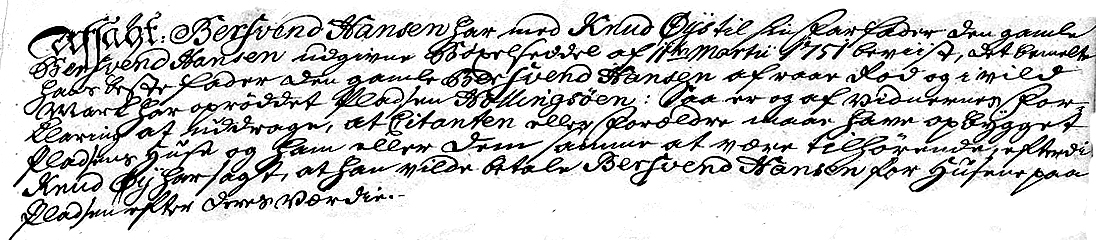 Afsagt: Bersvend Hansen har med Knud Øys til sin Farfader den gamle
Bersvend Hansen udgivne Böxelseddel af 11te Martii 1751 beviist, at bemelte
hans beste Fader den gamle Bersvend Hansen af raae Rod og i vild
Mark har oprøddet Pladsen Höllingsöen: Saa er og af Vidnernes For-
klaring at uddrage, at Citanten eller Forældre maae have opbygget
Pladsens Huse og ham eller dem samme at være tilhørende, efterdi
Knud Øy har sagt, at han vilde betale Bersvend Hansen for Husene paa
Pladsen efter deres Værdie.-